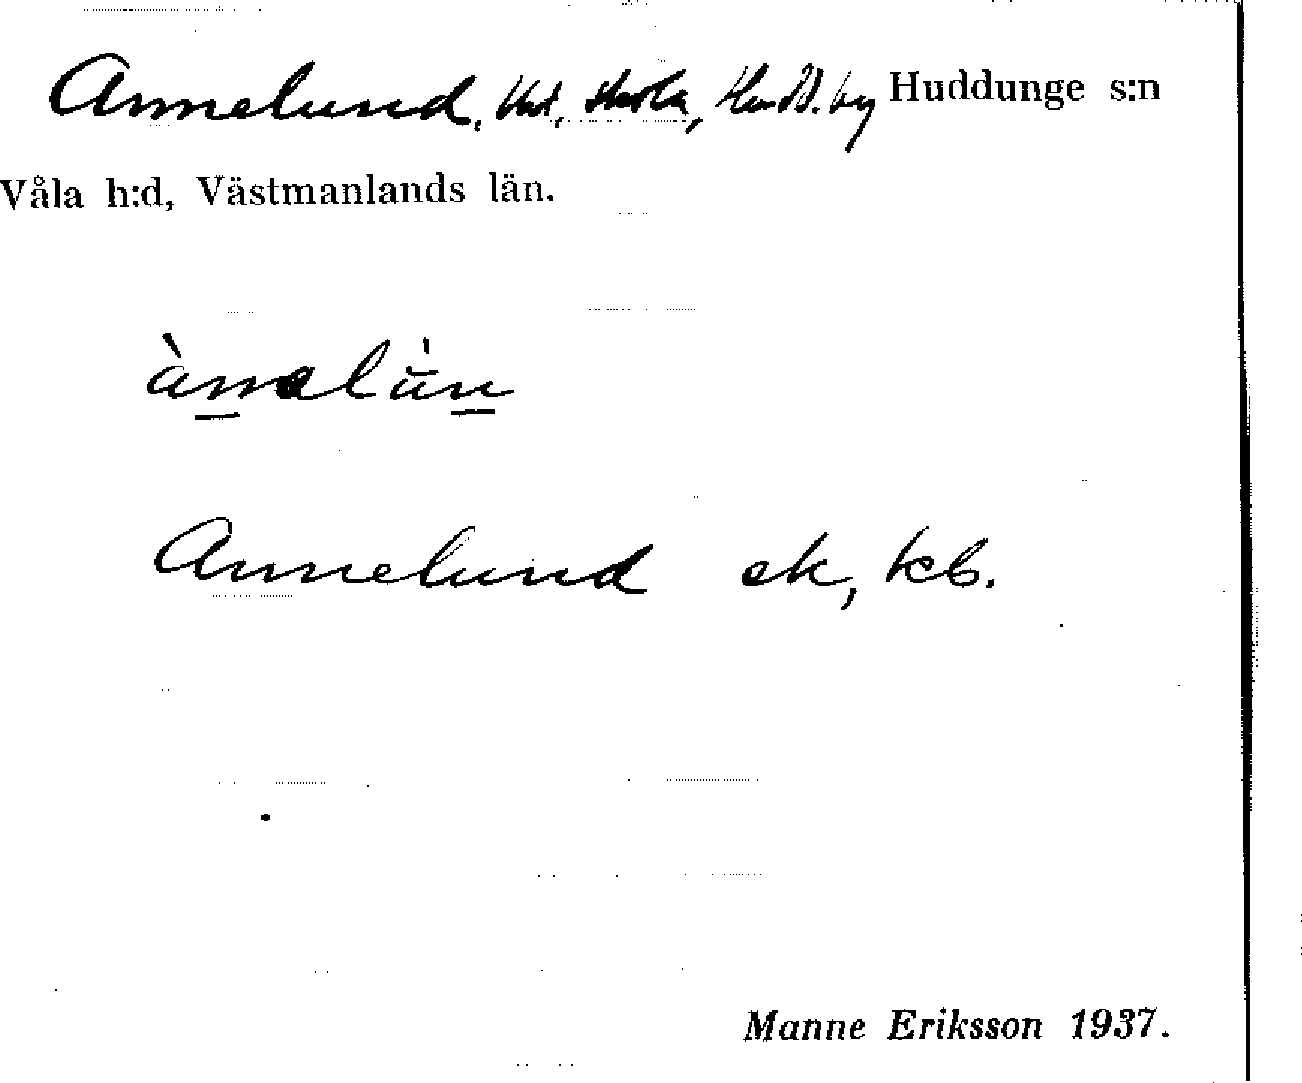 Annelund, skola, Hudd. by Huddunge s:n
Våla h:d, Västmanlands län.
ànnelùn
Annelund ek, kb.
Manne Eriksson 1937.